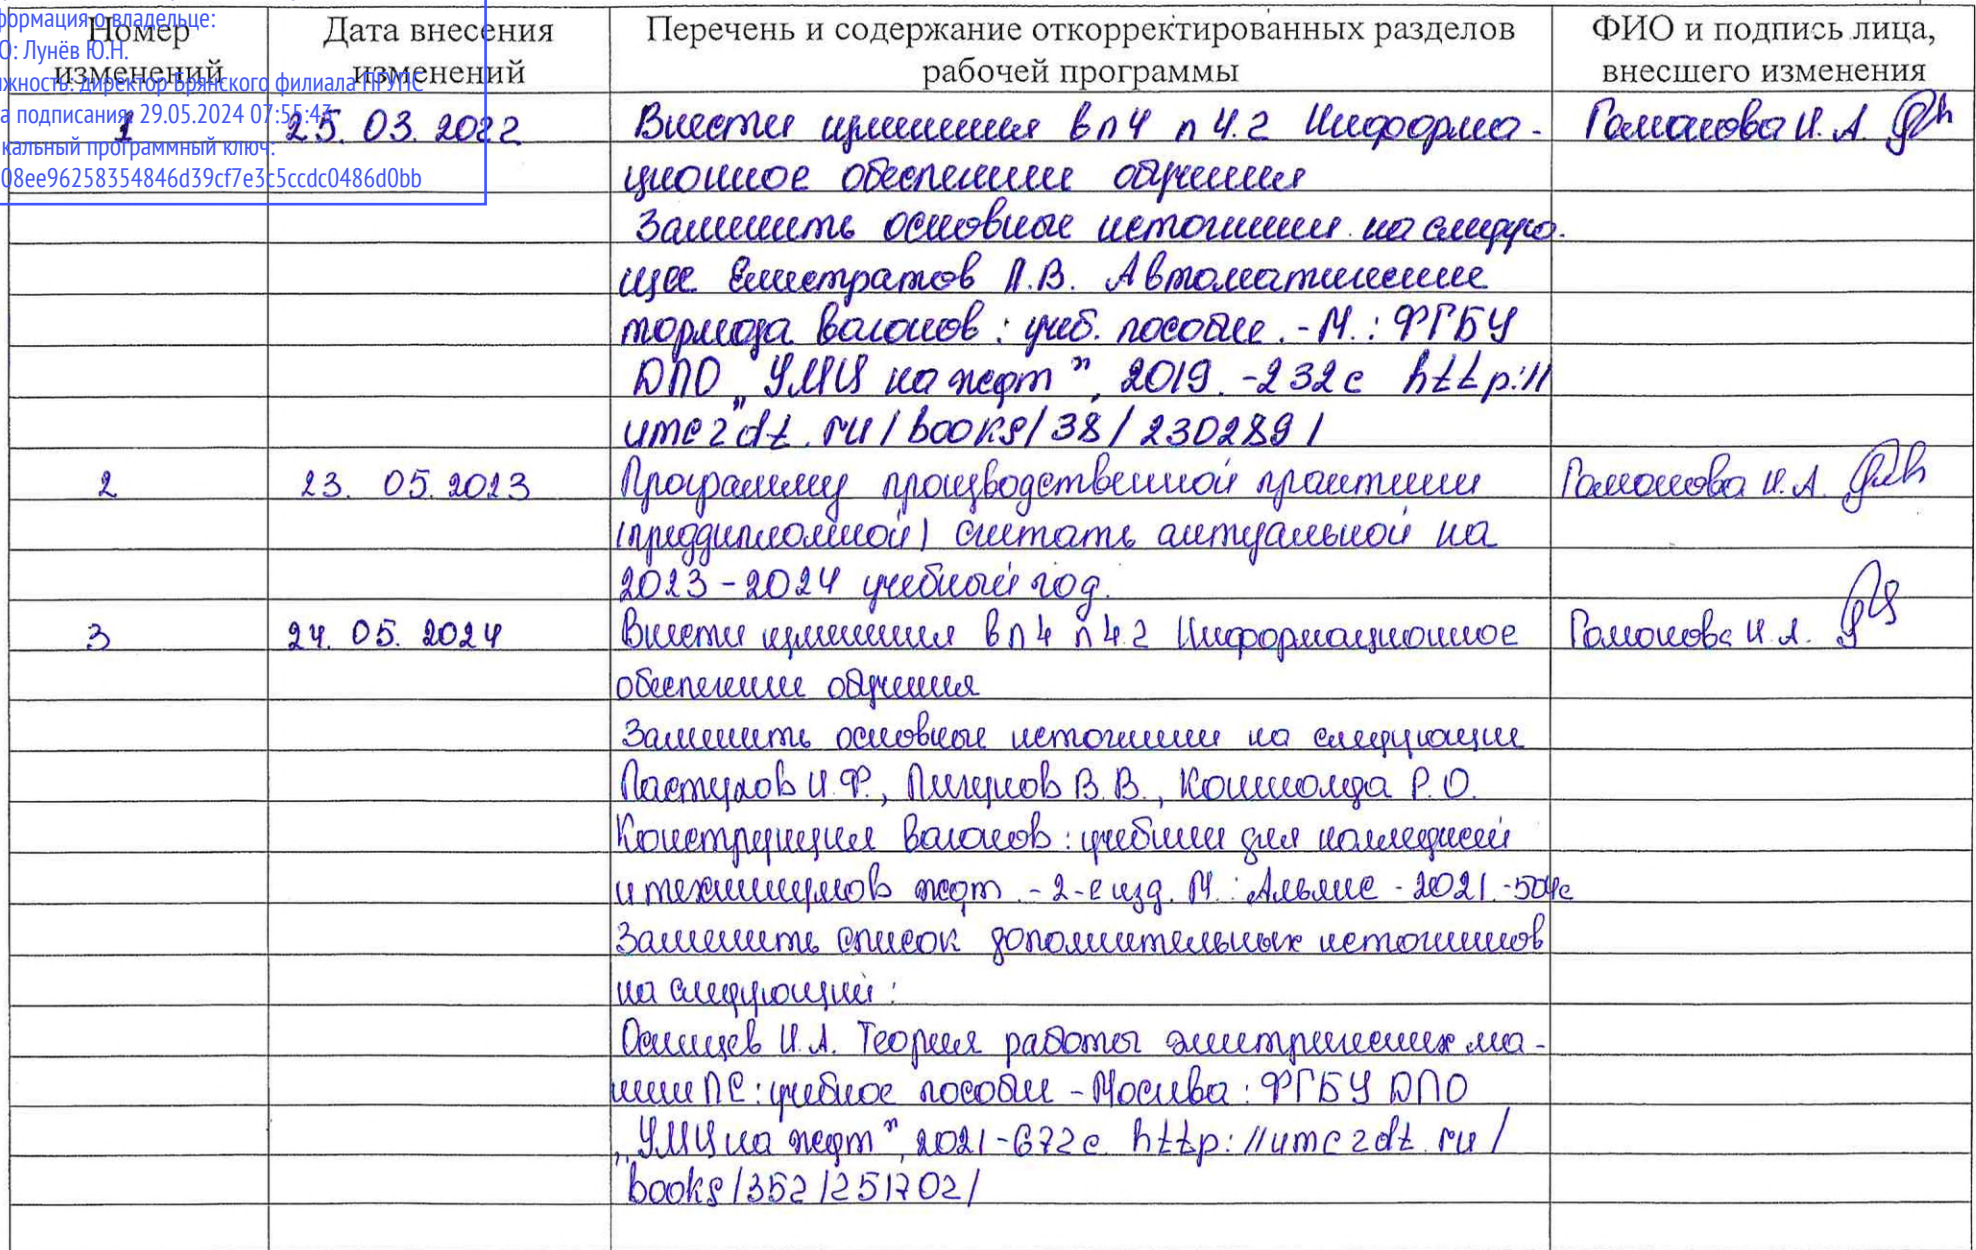 формация о владельце:
О: Лунёв Ю.Н.
жность: директор Брянского филиала ПГУПС
а подписания: 29.05.2024 07:55:43
кальный программный ключ:
08ee96258354846d39cf7e3c5ccdc0486d0bb
Номер изменений
Дата внесения изменений
Перечень и содержание откорректированных разделов
рабочей программы
ФИО и подпись лица,
внесшего изменения
1 25.03.2022 Внести изменения в п4 п 4.2 Информа- Гамонова И.А.
ционное обеспечение обучения
Заменить основные источники на следую-
щее Елистратов А.В. Автоматические
тормоза вагонов: учеб. пособие. - М.: ФГБУ
ДПО „УМЦ на ждт", 2019. - 232 с http://
umczdt.ru/books/38/230289/
2 23.05.2023 Программу производственной практики Гамонова И.А.
(преддипломной) считать актуальной на
2023-2024 учебный год.
3 24.05.2024 Внести изменения в п4 п4.2 Информационное Гамонова И.А.
обеспечение обучения
Заменить основные источники на следующие
Пастухов И.Ф., Пигунов В.В., Кошкалда Р.О.
Конструкция вагонов: учебник для колледжей
и техникумов ждт. - 2-е изд. М.: Альянс - 2021. - 504с
Заменить список дополнительных источников
на следующий:
Осинцев И.А. Теория работы электрических ма-
шин ПС: учебное пособие - Москва: ФГБУ ДПО
„УМЦ на ждт", 2021 - 672с. http://umczdt.ru/
books/352/251702/